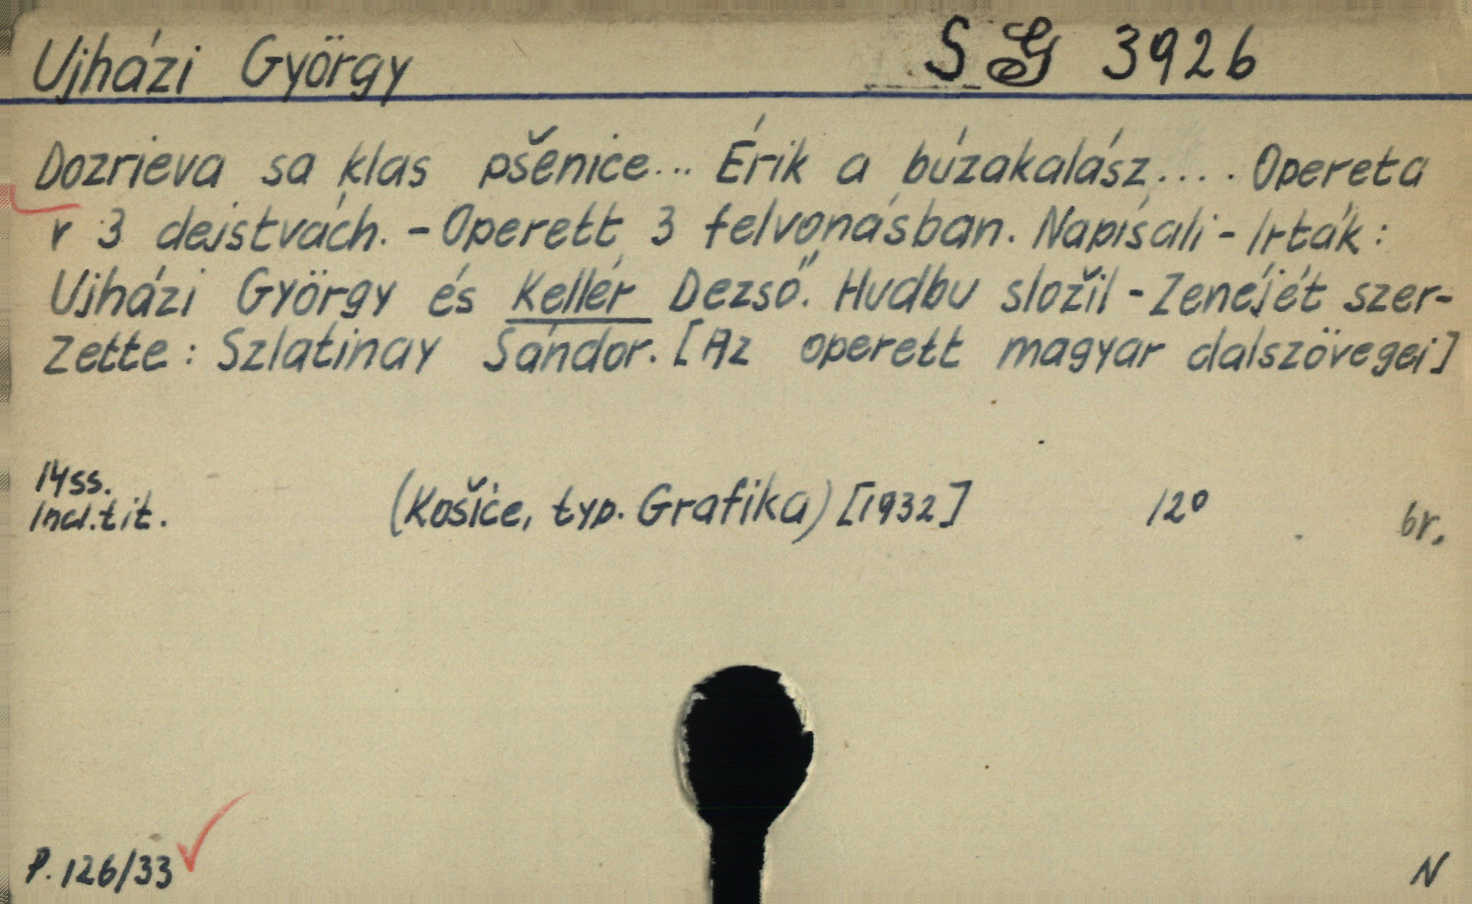 Ujházi György
S G 3926
Dozrieva sa klas pšenice... Érik a búzakalász.... Opereta
v 3 dejstvách. - Operett 3 felvonásban. Napísali - Irták:
Ujházi György és Kellér Dezső. Hudbu složil - Zenéjét szer-
zette: Szlatinay Sándor. [Az operett magyar dalszövegei]
14 ss.
incl. tit.
(Košice, typ. Grafika) [1932]
12°
br.
P. 126/33
N